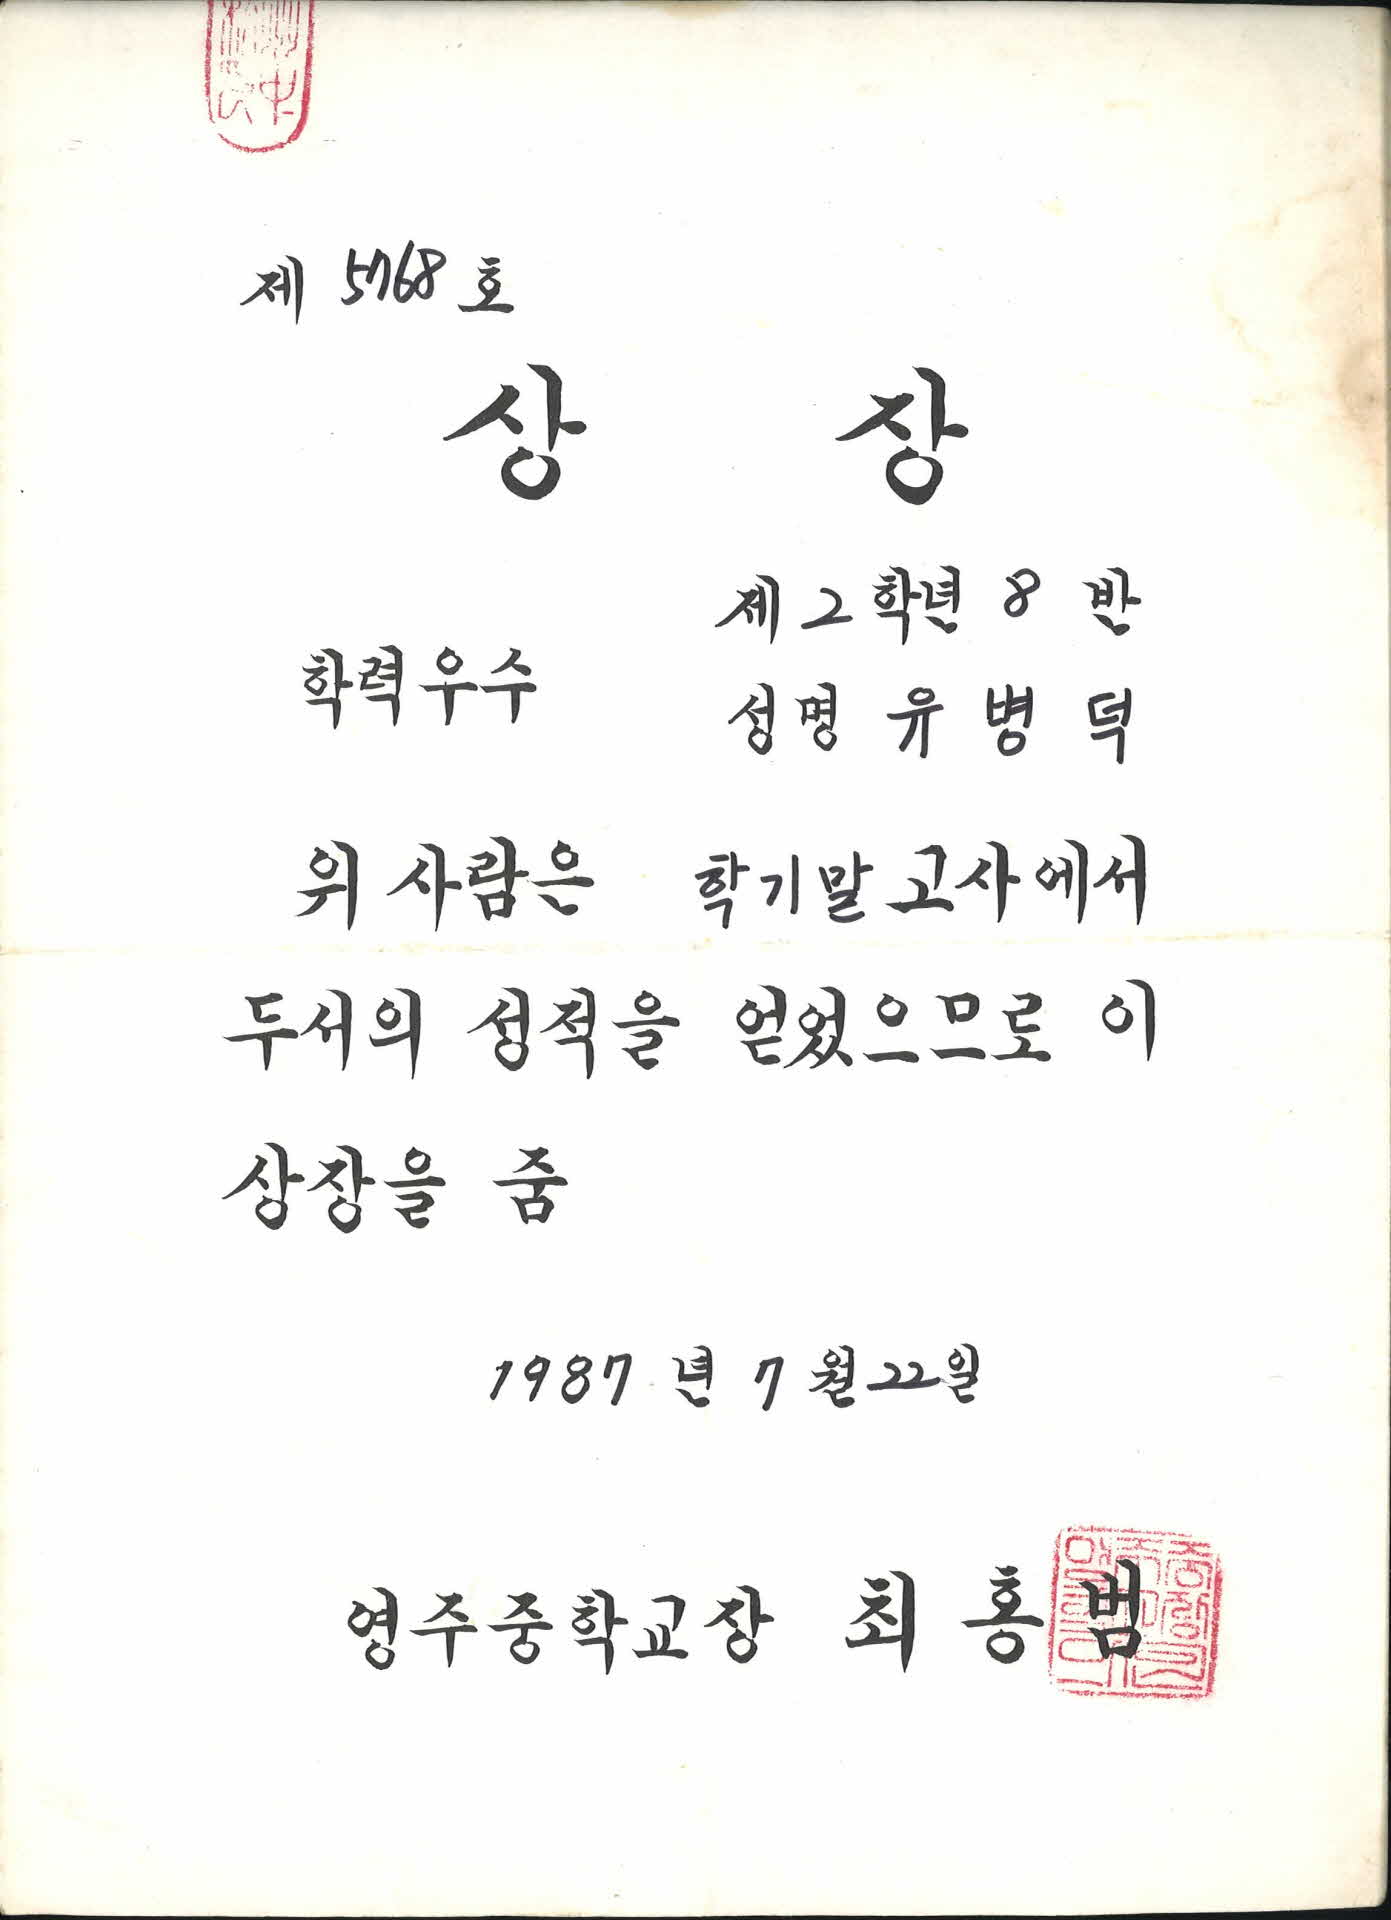 제 5768 호
상 장
제 2 학년 8 반
학력우수
성명 유 병 덕
위 사람은 학기말 고사에서
두서의 성적을 얻었으므로 이
상장을 줌
1987 년 7 월 22 일
영주중학교장 최 홍 범